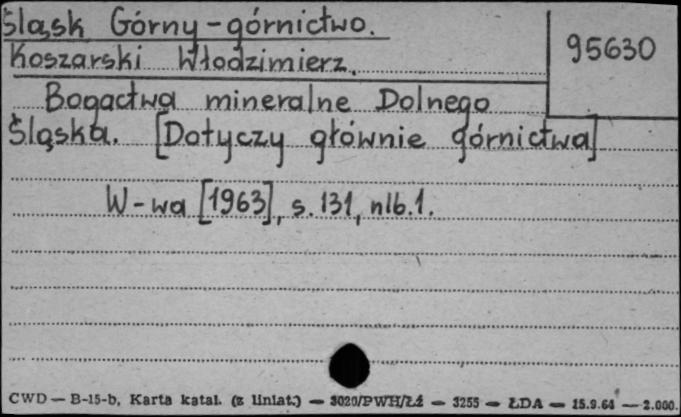 Śląsk Górny - górnictwo.
95630
Koszarski Włodzimierz.
Bogactwa mineralne Dolnego
Śląska. [Dotyczy głównie górnictwa]
W-wa [1963], s. 131, nlb. 1.
CWD — B-15-b, Karta katal. (z liniat.) — 3020/PWH/Łź — 3255 — ŁDA — 15.9.64 — 2.000.